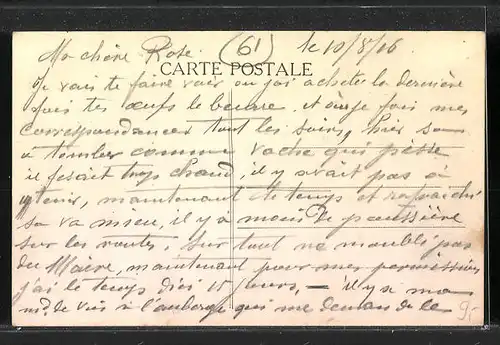 Ma chère Rose. (61) le 10/8/16
CARTE POSTALE
Je vais te faire voir ou j'ai acheter la dernière
fois tes œufs le beurre, et ou je fais mes
correspondances tout les soirs, hier sa
à tomber comme vache qui pisse
il fesait trop chaud, il y avait pas à
tenir, maintenant le temps et rafraichi
sa va mieu, il y à moins De poussière
sur les routes, surtout ne oublié pas
du Maire, maintenant pour mes permissions
j'ai le temps d'ici 15 jours, — il y a ma
de vis à l'auberge qui me demande le
9,-